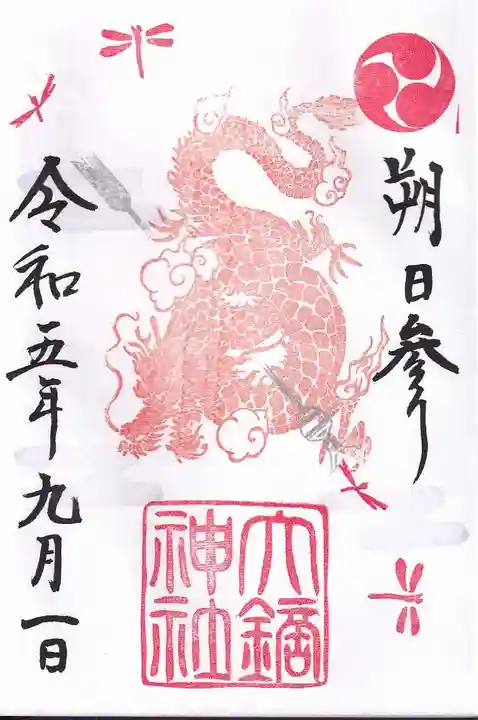 朔日参り
大鏑
神社
令和五年九月一日